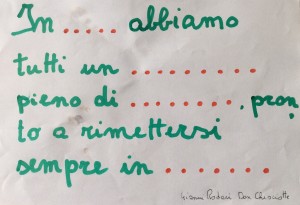 In ..... abbiamo
tutti un .........
pieno di ........, pron
to a rimettersi
sempre in .......
Gianni Rodari Don Chisciotte